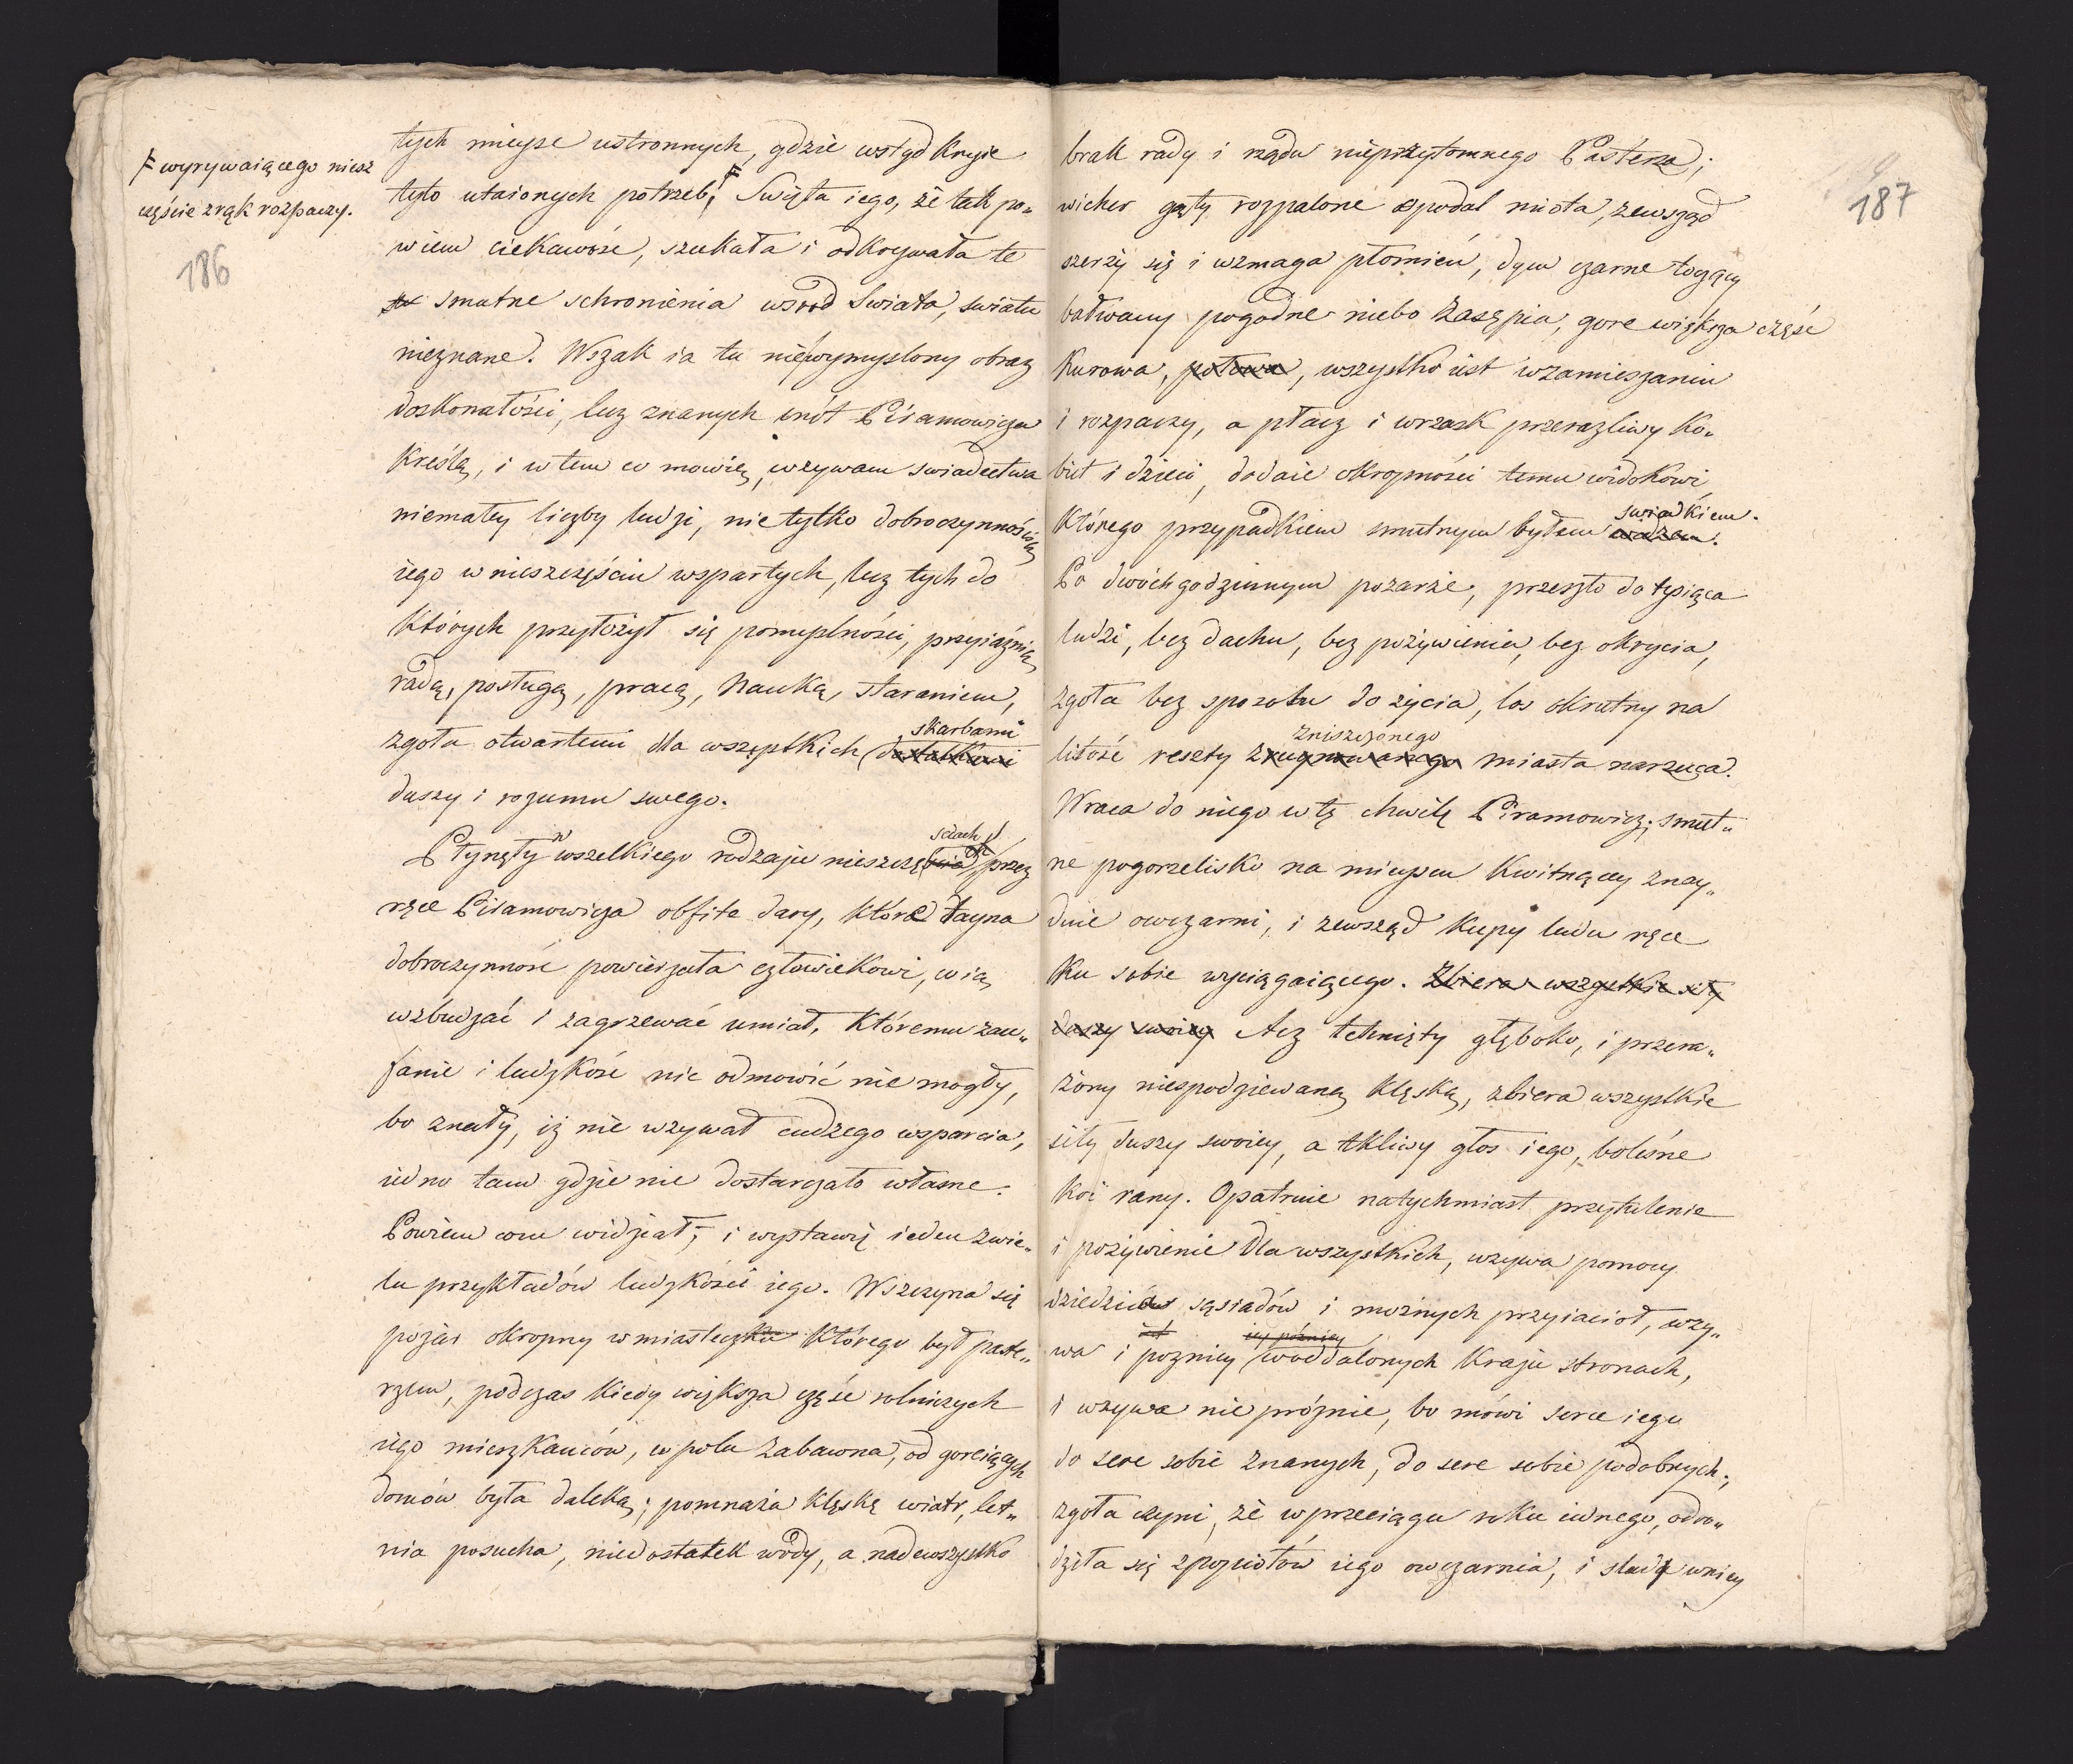 ╒ wyrywaiącego niesz
częście z rąk rozpaczy.
186
tych mieysc ustronnych, gdzie wstyd kryie
tylo utaionych potrzeb, ╒ Swięta iego, że tak po„
wiem ciekawość, szukała i odkrywała te
smutne schronienia wsrod Swiata, swiatu
nieznane. Wszak ia tu niewymyslony obraz
doskonałości, lecz znanych cnót Piramowicza
kreślę, i w tem co mowię, wzywam swiadectwa
niemałey liczby ludzi, nie tylko dobroczynnością
iego w nieszczęściu wspartych, lecz tych do
których przyłożył się pomyslności, przyiaźnią,
radą, posługą, pracą, Nauką, staraniem,
skarbami
zgoła otwartemi dla wszystkich dostatkami
duszy i rozumu swego.
Płynęły w wszelkiego rodzaiu nieszczęściach przez
ręce Piramowicza obfite dary, które tayna
dobroczynność powierzała człowiekowi, co ią
wzbudzać i zagrzewać umiał, któremu zau„
fanie i ludzkość nic odmowić nie mogły,
bo znały, iż nie wzywał cudzego wsparcia,
iedno tam gdzie nie dostarczało własne.
Powiem com widział, i wystawię ieden z wie„
lu przykładów ludzkości iego. Wszczyna się
pożar okropny w miasteczku którego był paste„
rzem, podczas kiedy większa część rolniczych
iego mieszkańców, w polu zabawna, od goreiących
domów była daleką; pomnaża klęskę wiatr, let„
nia posucha, niedostatek wody, a nadewszystko
187
brak rady i rządu nieprzytomnego Pasterza;
wicher gęty rozpalone opodal miota, zewsząd
szerzy się i wzmaga płomień, dym czarne tocząc
bałwany pogodne niebo zasępia, gore większa część
Kurowa, połowa, wszystko iest w zamieszaniu
i rozpaczy, a płacz i wrzask przerazliwy ko„
biet i dzieci, dodaie okropności temu widokowi
swiadkiem.
którego przypadkiem smutnym byłem widzem.
Po dwóchgodzinnym pożarze, przeszło do tysiąca
ludzi, bez dachu, bez pożywienia, bez okrycia,
zgoła bez sposobu do życia, los okrutny na
zniszczonego
litość reszty zruynowanego miasta narzuca.
Wraca do niego w tę chwilę Piramowicz; smut„
ne pogorzelisko na mieyscu kwitnącey znay„
duie owczarni, i zewsząd kupy ludu ręce
ku sobie wyciągaiącego. Zbiera wszystkie siły
duszy swoiey Acz tchnięty głęboko, i przera„
żony niespodziewaną klęską, zbiera wszystkie
siły duszy swoiey, a tkliwy głos iego, bolesne
koi rany. Opatruie natychmiast przytulenie
i pożywienie dla wszystkich, wzywa pomocy
dziedziców sąsiadów i możnych przyiacioł, wzy„
iey pózniey
wa i pozniey w oddalonych kraju stronach,
i wzywa nie próżnie, bo mówi serce iego
do serc sobie znanych, do serc sobie podobnych;
zgoła czyni, że w przeciągu roku iednego, odro„
dziła się z popiołów iego owczarnia, i slady w niey